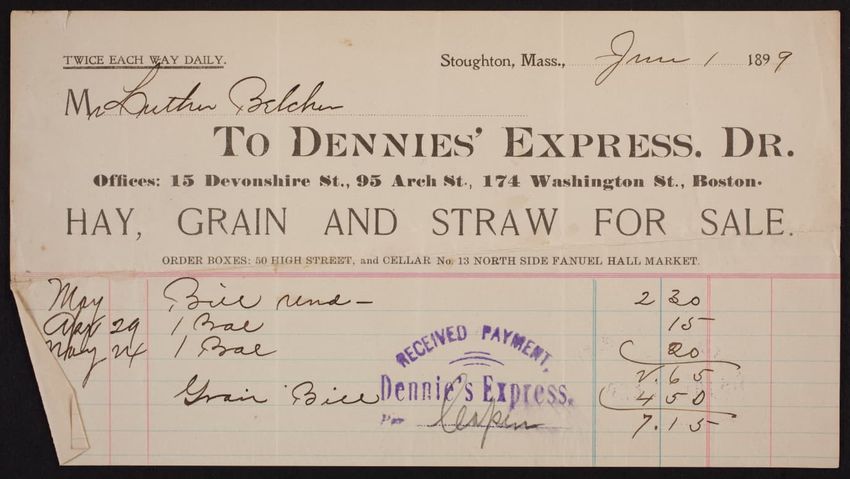 TWICE EACH WAY DAILY.
Stoughton, Mass., June 1 1899
Mr Luther Belcher
TO DENNIES' EXPRESS. DR.
Offices: 15 Devonshire St., 95 Arch St., 174 Washington St., Boston.
HAY, GRAIN AND STRAW FOR SALE.
ORDER BOXES: 50 HIGH STREET, and CELLAR No. 13 NORTH SIDE FANUEL HALL MARKET.
May Bill rend - 2 30
Apr 29 1 Bal 15
May 24 1 Bal 20
2.65
Grain Bill 4 50
7.15
RECEIVED PAYMENT,
Dennie's Express.
Per